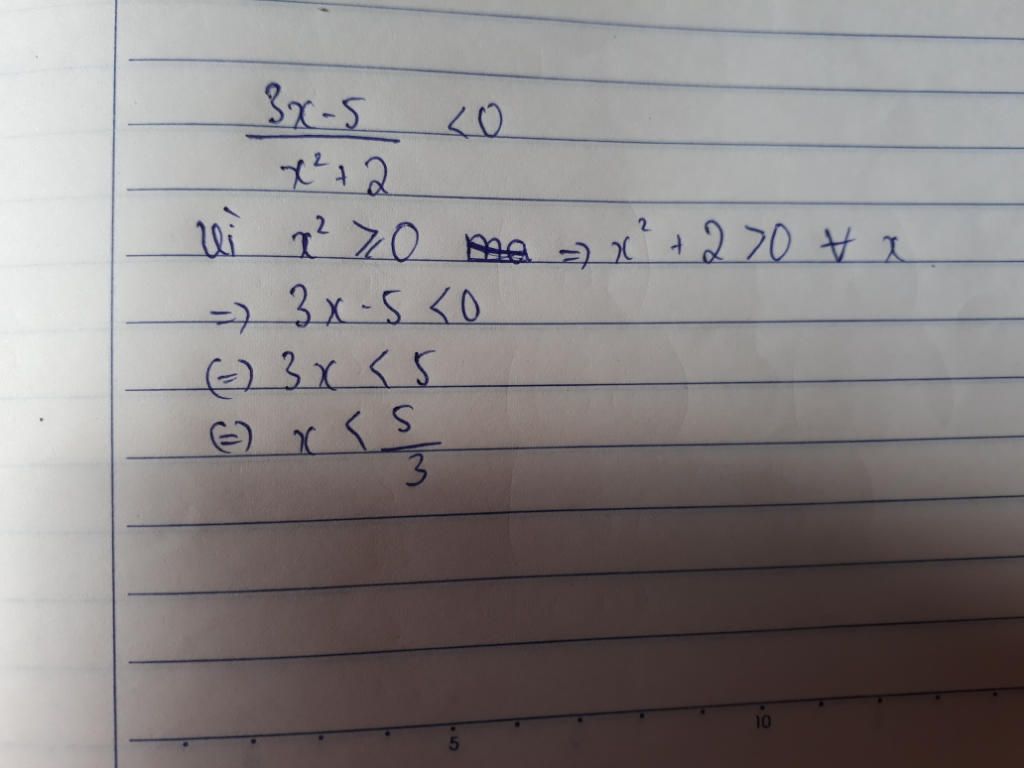 3x-5 / x² + 2 < 0
Vì x² ⩾ 0 => x² + 2 > 0 ∀ x
=> 3x - 5 < 0
(=) 3x < 5
(=) x < 5/3
5 10